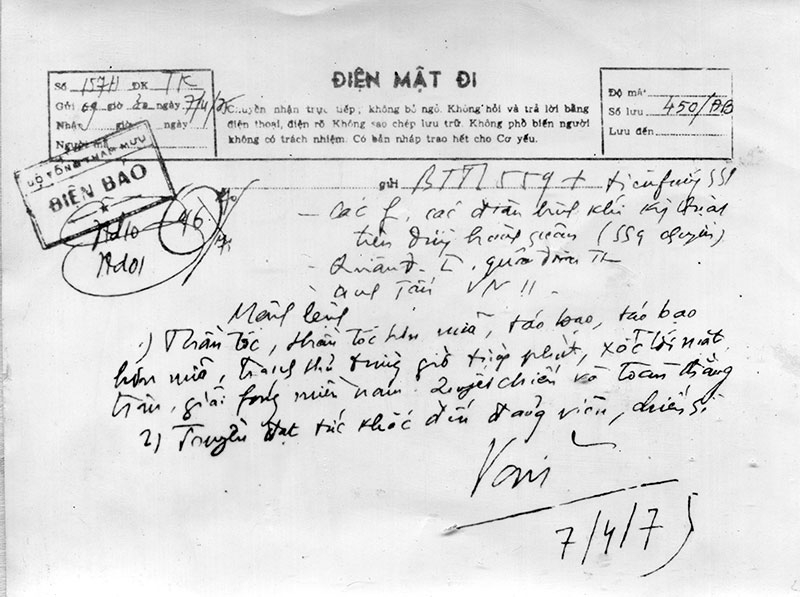 ĐIỆN MẬT ĐI
Số 157H ĐK TK
Gửi giờ ngày 7/4/75
Nhận giờ ngày
Người mã
Chuyển nhận trực tiếp, không bỏ ngỏ. Không hỏi và trả lời bằng
điện thoại, điện rõ Không sao chép lưu trữ. Không phổ biến người
không có trách nhiệm. Có bản nháp trao hết cho Cơ yếu.
Độ mật
Số lưu 450/ĐB
Lưu đến
BỘ TỔNG THAM MƯU
ĐIỆN BÁO
46
Ad10
Ad01
gửi BTTL 559 +
- Các f, các binh khí kỹ thuật
tiến hành quân (559 chuyển)
- Quân đ. I, quân đoàn
- Tấn VN
Mệnh lệnh
1) Thần tốc, thần tốc hơn nữa, táo bạo, táo bạo
hơn nữa, tranh thủ từng giờ từng phút, xốc tới mặt
trận, giải fóng miền nam. Quyết chiến và toàn thắng
2) Truyền đạt tức khắc đến đảng viên, chiến sĩ
Văn
7/4/75